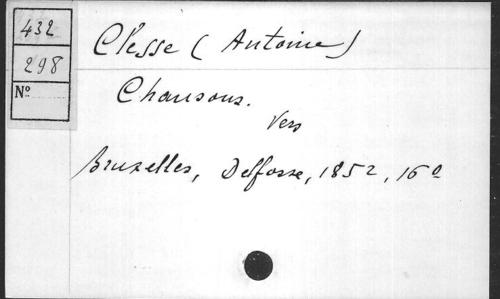 432
298
N°
Clesse (Antoine)
Chansons.
Vers
Bruxelles, Delfosse, 1852, 16°